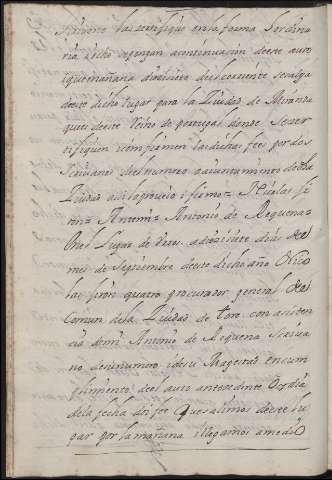 las zertifique en la forma hordina
ria y esto se ponga a continuacion deste auto
y que mañana diez i siete deste corriente se salga
deste dicho lugar para la Ziudad de Miranda
que es deste Reino de portugal donde se zer
tifiquen i confirmen las dichas fees por dos
Scrivanos del numero o aiuntamiento de dicha
Ziudad assi lo proveio i firmo = Nicolas
Antemi = Antonio de Requena =
En el Lugar de a diez i siete dias del
mes de septiembre deste dicho año Nico
las quatro procurador general del
Comun de la Ziudad de Toro con asisten
cia de mi Antonio de Requena Scriva
no del numero i de su Magestad en cum
plimiento del auto antecedente Oy dia
de la fecha doi fee que salimos deste lu
gar por la mañana i llegamos a medio